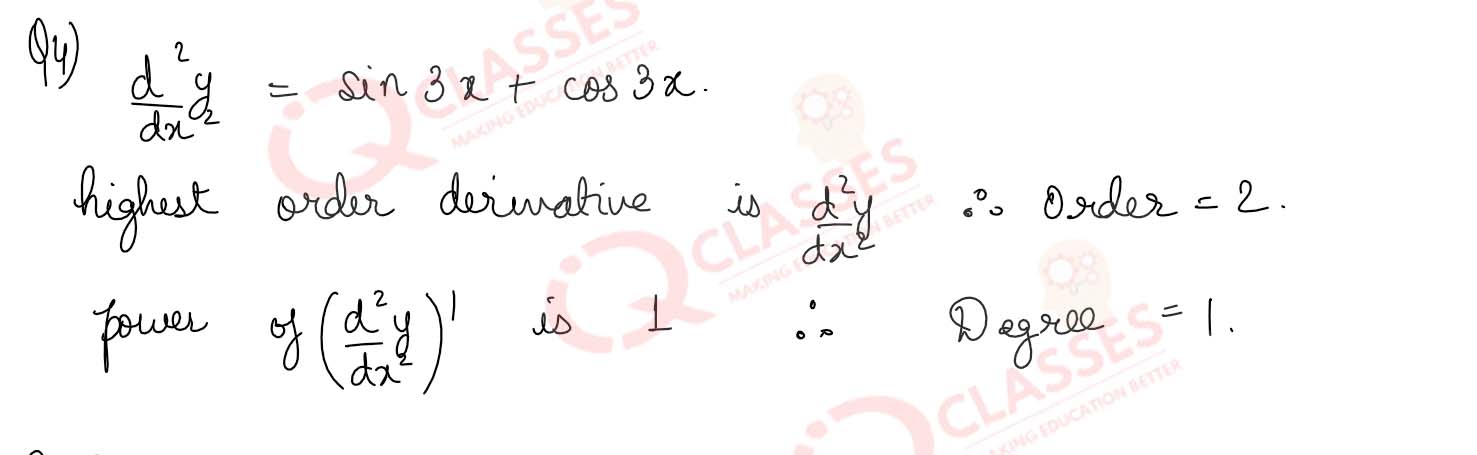 Q4) d²y/dx² = sin 3x + cos 3x.
highest order derivative is d²y/dx² ∴ Order = 2.
power of (d²y/dx²)¹ is 1 ∴ Degree = 1.
CLASSES
MAKING EDUCATION BETTER
CLASSES
MAKING EDUCATION BETTER
CLASSES
MAKING EDUCATION BETTER